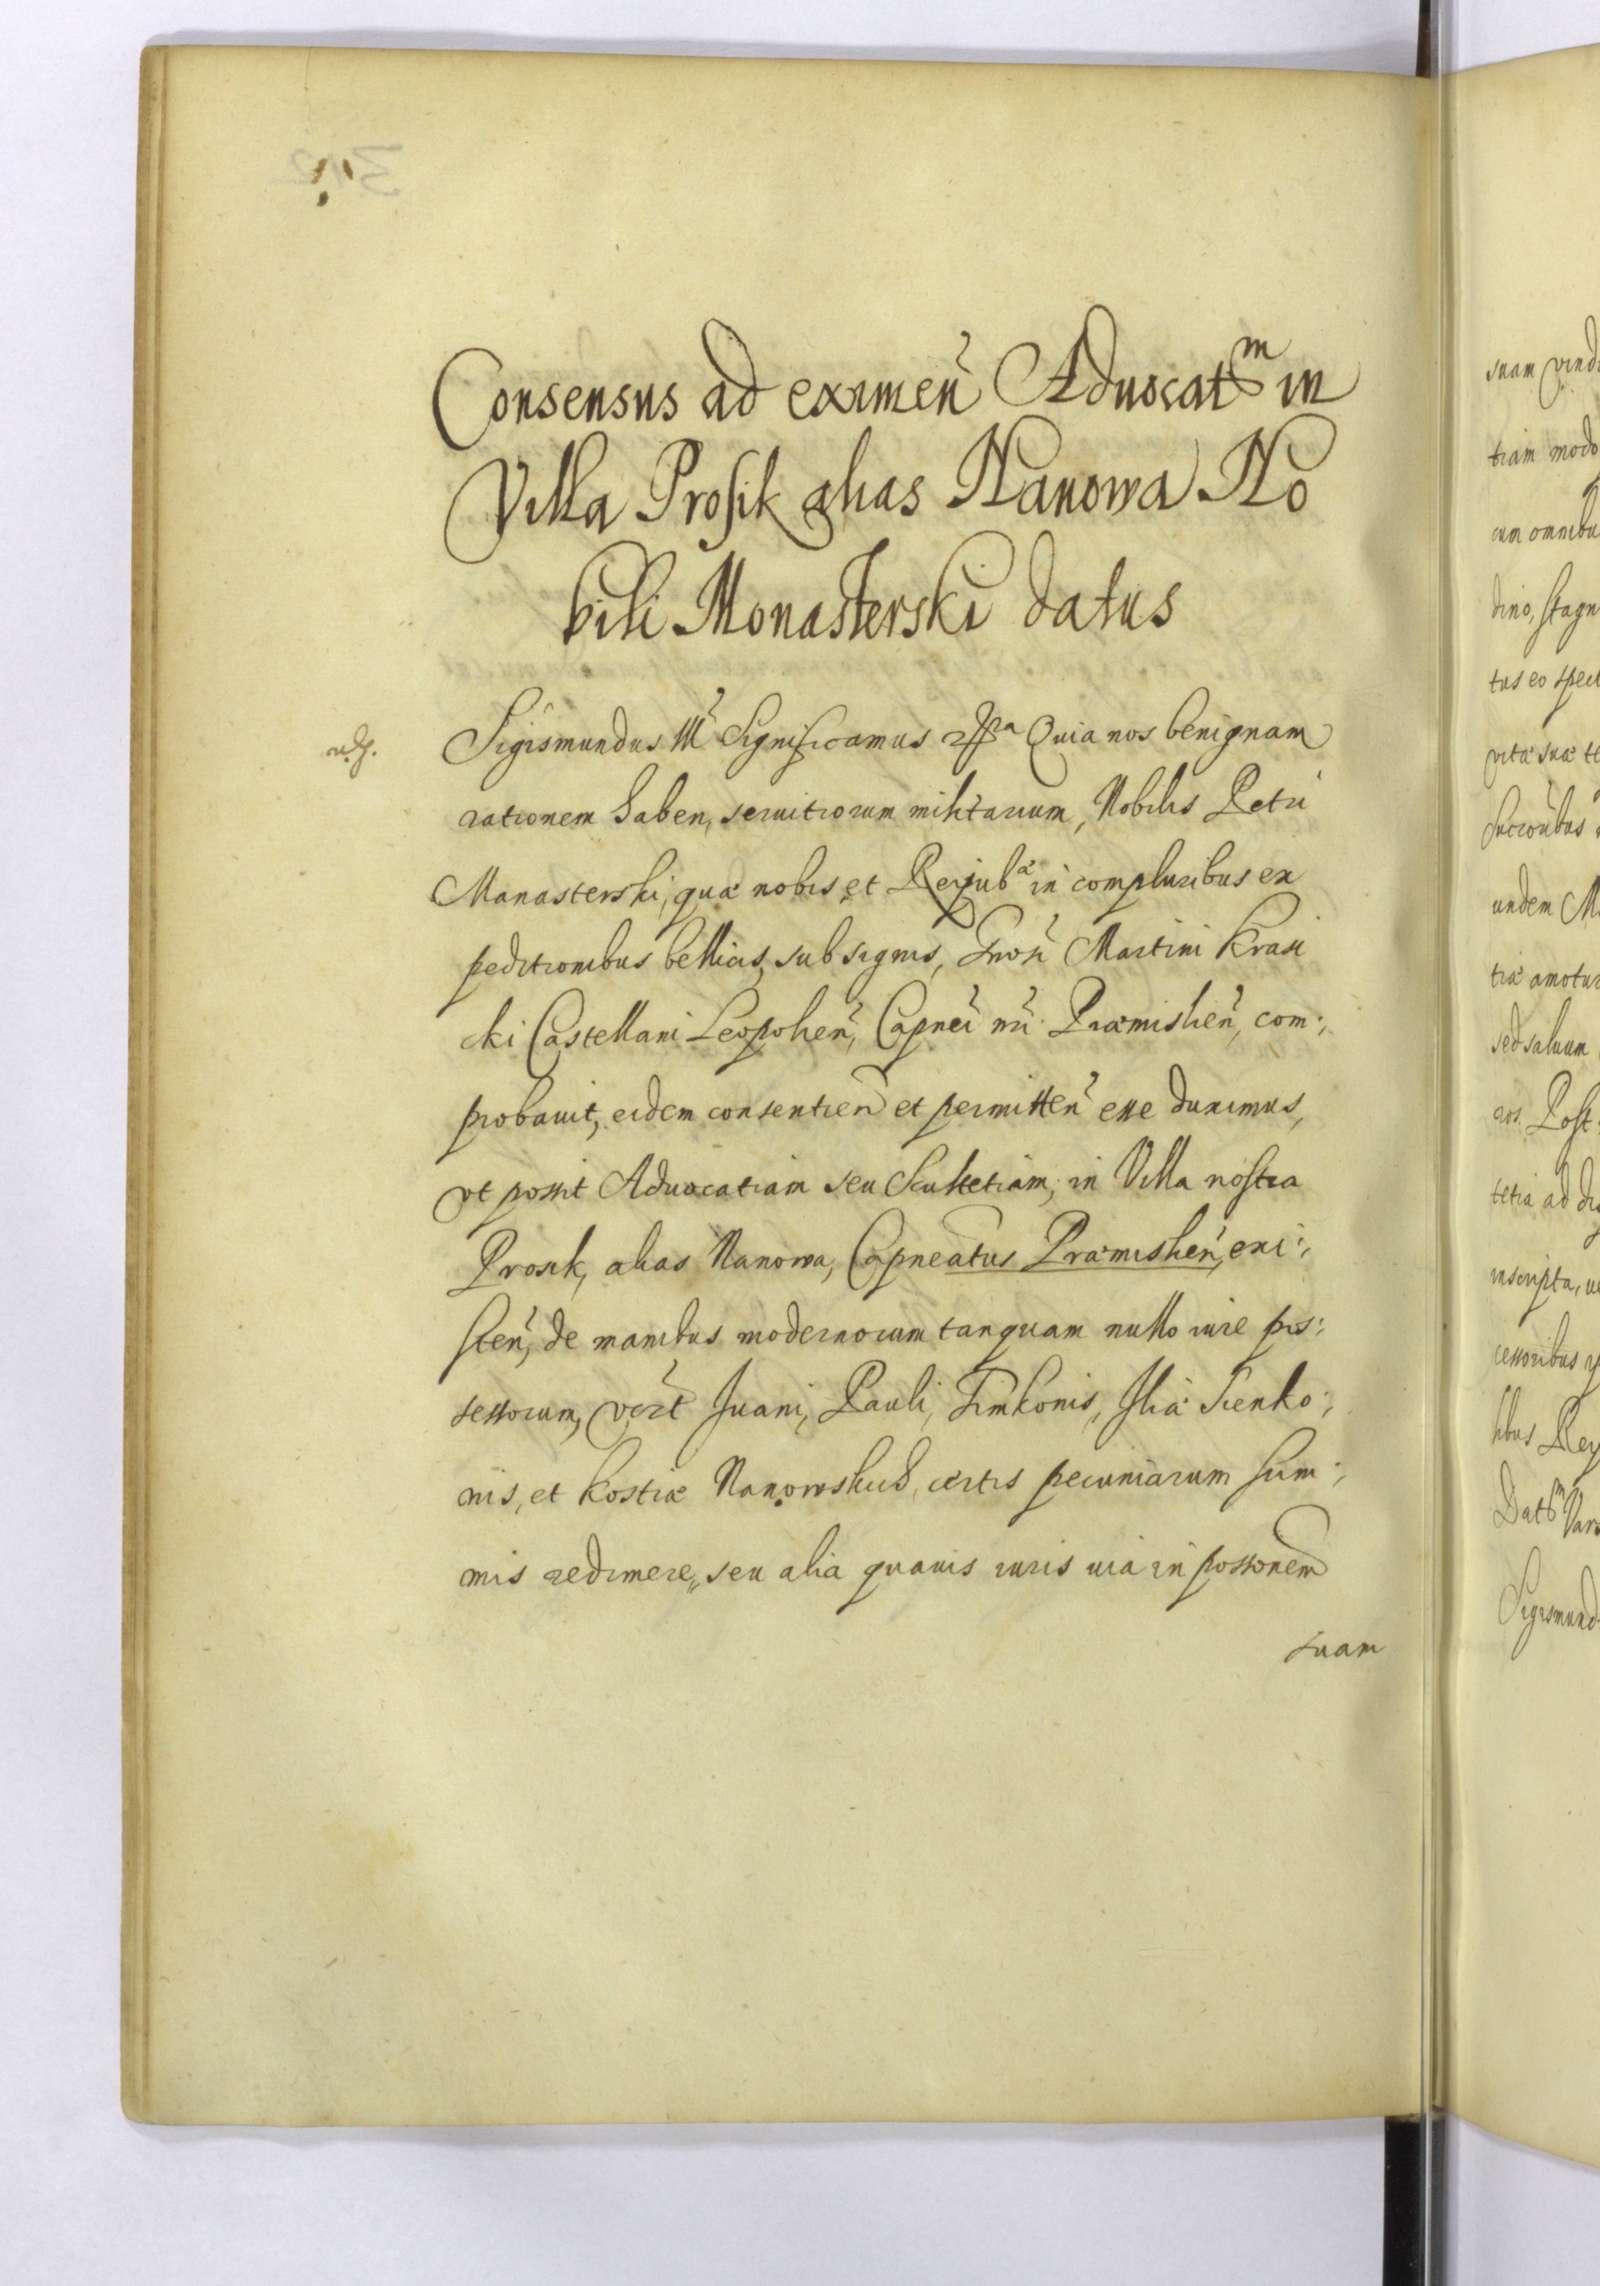 Consensus ad eximen̄ Aduocat̄m in
Villa Prosik alias Nanowa No
bili Monasterski datus
Sigismundus III Significamus Quia nos benignam
rationem haben, seruitiorum militarium, Nobilis Petri
Manasterski, quæ nobis et Reipub in compluribus ex
peditionibus bellicis, sub signis, Martini Krasi
cki Castellani Leopolien̄, Capnei nri Præmislien̄, com:,
probauit, eidem consentien et permitten̄ esse duximus,
vt possit Aduocatiam seu Scultetiam, in Villa nostra
Prosik, alias Nanowa, Capneatus Præmislien̄, exi:,
sten̄, de manibus modernorum tanquam nullo iure pos:
sessorum, vēzt Juani, Pauli, Timkonis, Iliæ Sienko:,
nis, et Kostiæ Nanowskich, certis pecuniarum sum:,
mis redimere, seu alia quauis iuris uia in possonem
suam
suam vind
tiam modo
cum omnibu
dino, stagn
tus eo spect
vitæ suæ te
undem M
tiæ amotur
sed saluum
ros. Post
tetia ad di
inscripta, u
cessoribus
libus Rey
Dat̄m Vars
Sigismund